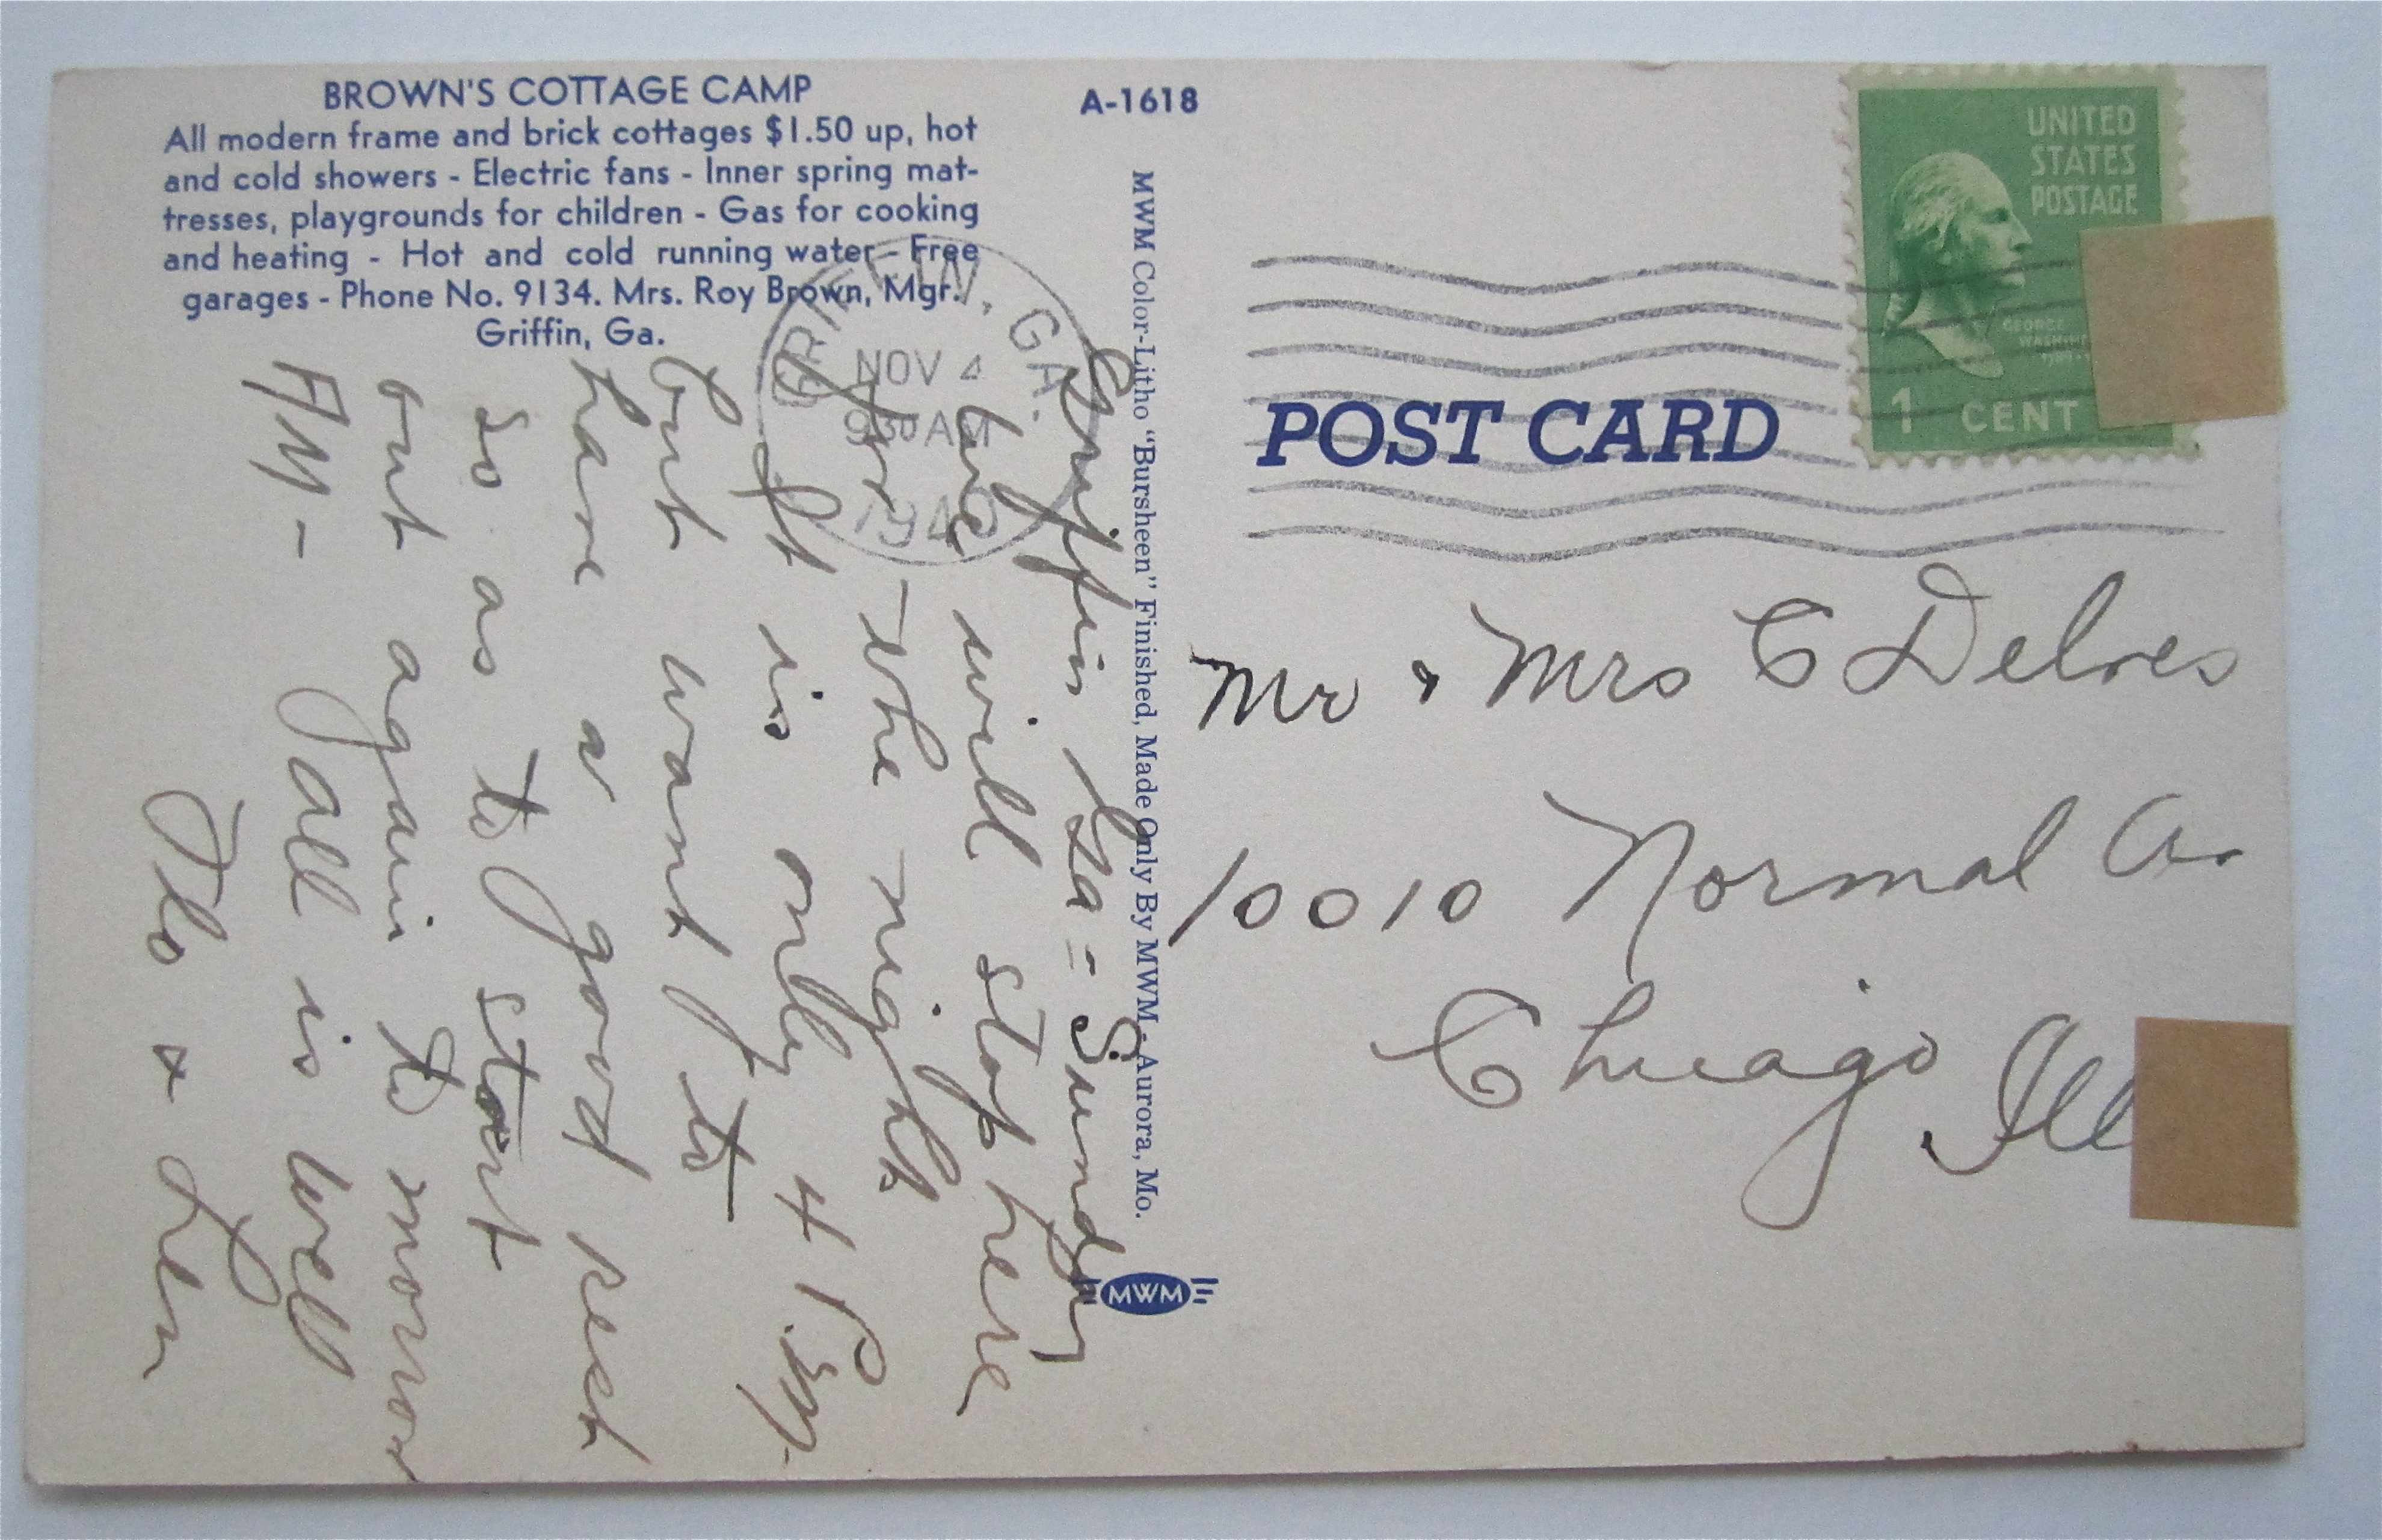 BROWN'S COTTAGE CAMP
All modern frame and brick cottages $1.50 up, hot
and cold showers - Electric fans - Inner spring mat-
tresses, playgrounds for children - Gas for cooking
and heating - Hot and cold running water - Free
garages - Phone No. 9134. Mrs. Roy Brown, Mgr.
Griffin, Ga.
Griffin Ga - Sunday
We will stop here
for the night
It is only 4 P.M.
but want to
have a good rest
so as to start
out again to morrow
AM - All is well
Flo & Len
A-1618
MWM Color-Litho "Bursheen" Finished, Made Only By MWM - Aurora, Mo.
MWM
GRIFFIN, GA.
NOV 4
930 AM
1940
UNITED
STATES
POSTAGE
GEORGE
1 CENT
POST CARD
Mr & Mrs C Delves
10010 Normal Av
Chicago, Ill